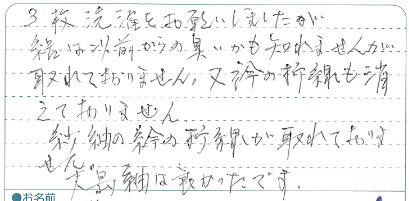 3枚洗濯をお願いしましたが
絽は以前からの臭いかも知れませんが
取れておりません。又衿の折線も消
えておりません
紗紬の衿の折線が取れておりま
せん。大島紬は良かったです。
●お名前